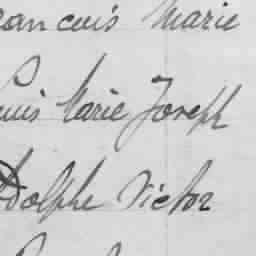 rancois Marie
ouis Marie Joseph
Adolphe Victor